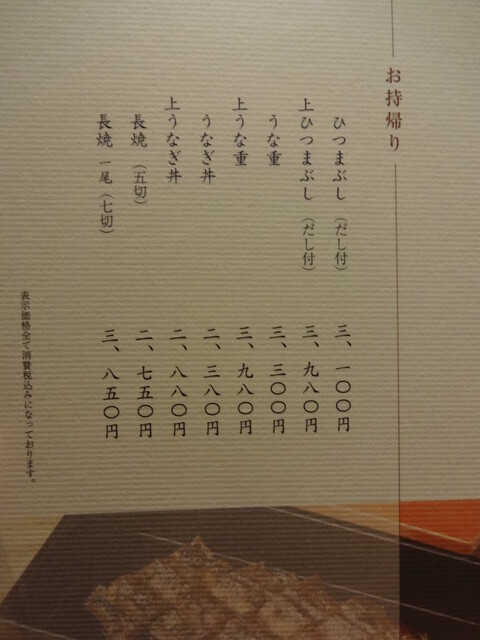 お持帰り
ひつまぶし（だし付） 三、一〇〇円
上ひつまぶし（だし付） 三、九八〇円
うな重 三、三〇〇円
上うな重 三、九八〇円
うなぎ丼 二、三八〇円
上うなぎ丼 二、八八〇円
長焼（五切） 二、七五〇円
長焼 一尾（七切） 三、八五〇円
表示価格全て消費税込みになっております。